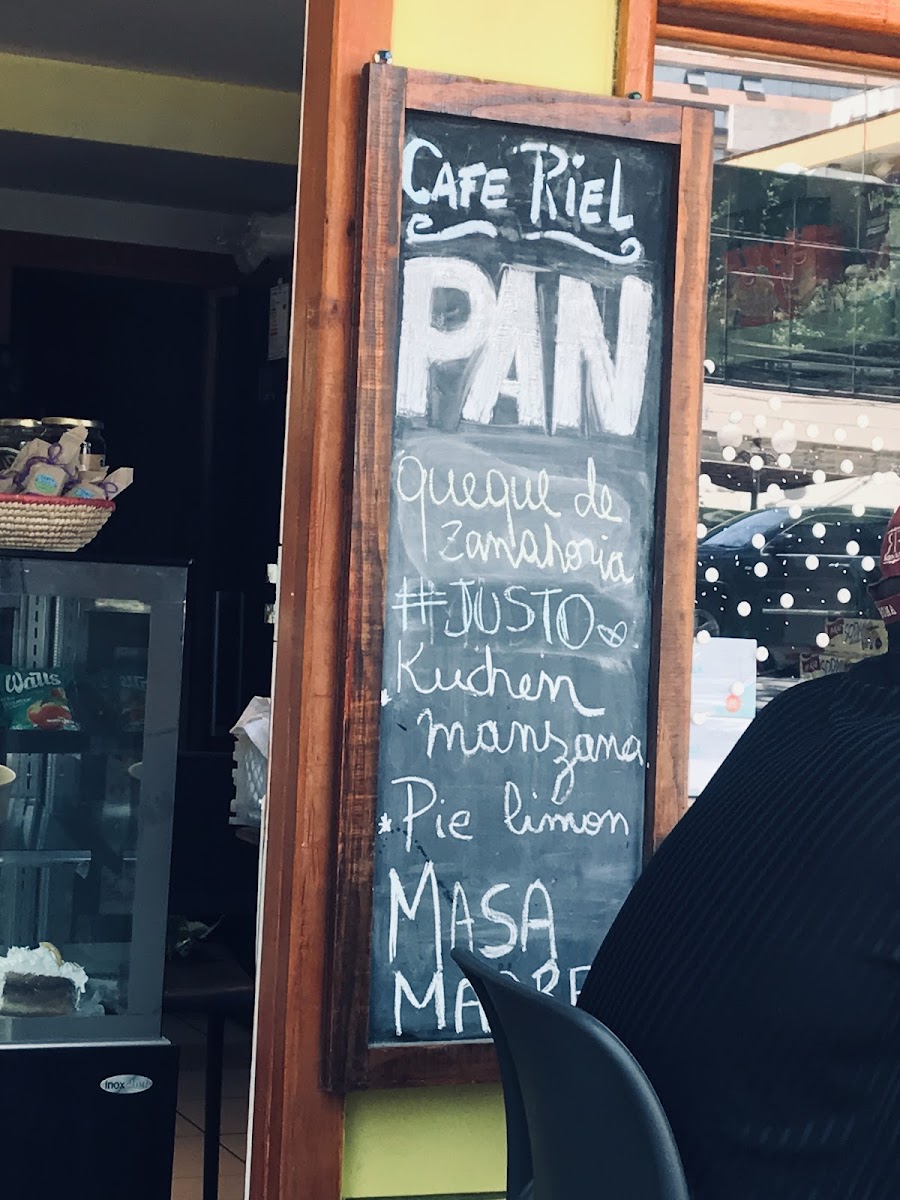 CAFE RIEL
PAN
queque de
zanahoria
#JUSTO
Kuchen
manzana
* Pie limon
MASA
Watts
inox